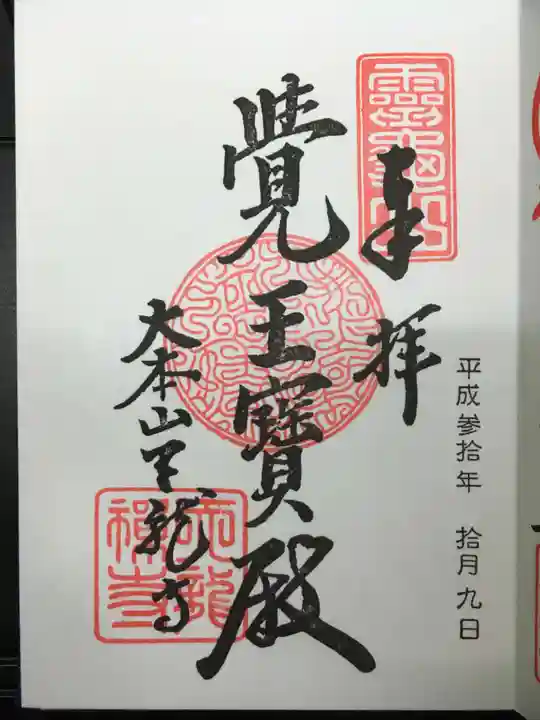 平成参拾年　拾月九日
奉拝
靈龜山
覺王寶殿
大本山天龍寺
天龍禅寺